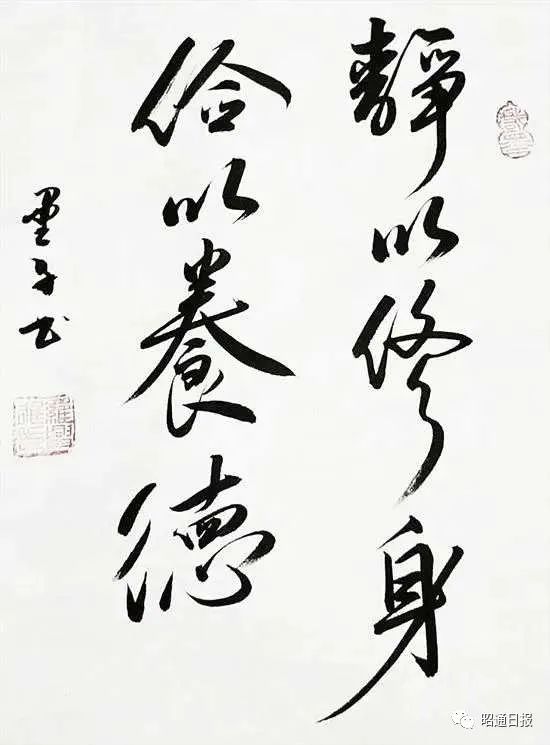 靜以修身
儉以養德
墨子书
昭通日报